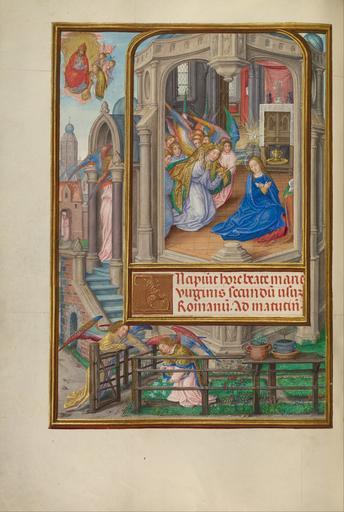 Incipiūt hore beate marie
virginis secundū usuȝ
Romanū. Ad matutinū